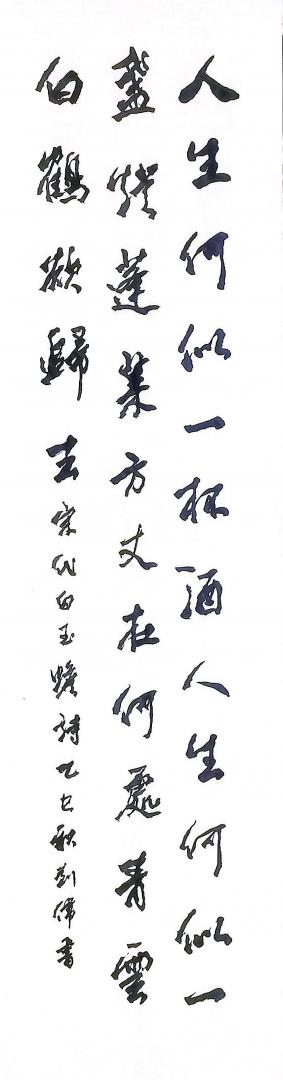 人生何似一杯酒人生何似一
盏灯蓬莱方丈在何處青雲
白鶴欲歸去宋代白玉蟾詩乙巳秋劉偉書